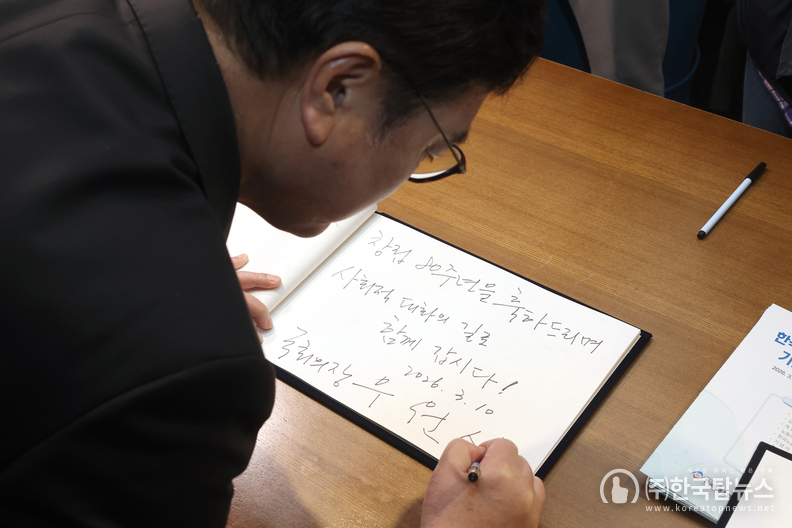 창립 80주년을 축하드리며
사회적 대화의 길로
함께 갑시다!
2026. 3. 10
국회의장 우 원 ㅅ
한국
기
2026. 3.
(주)한국탑뉴스
www.koreatopnews.net